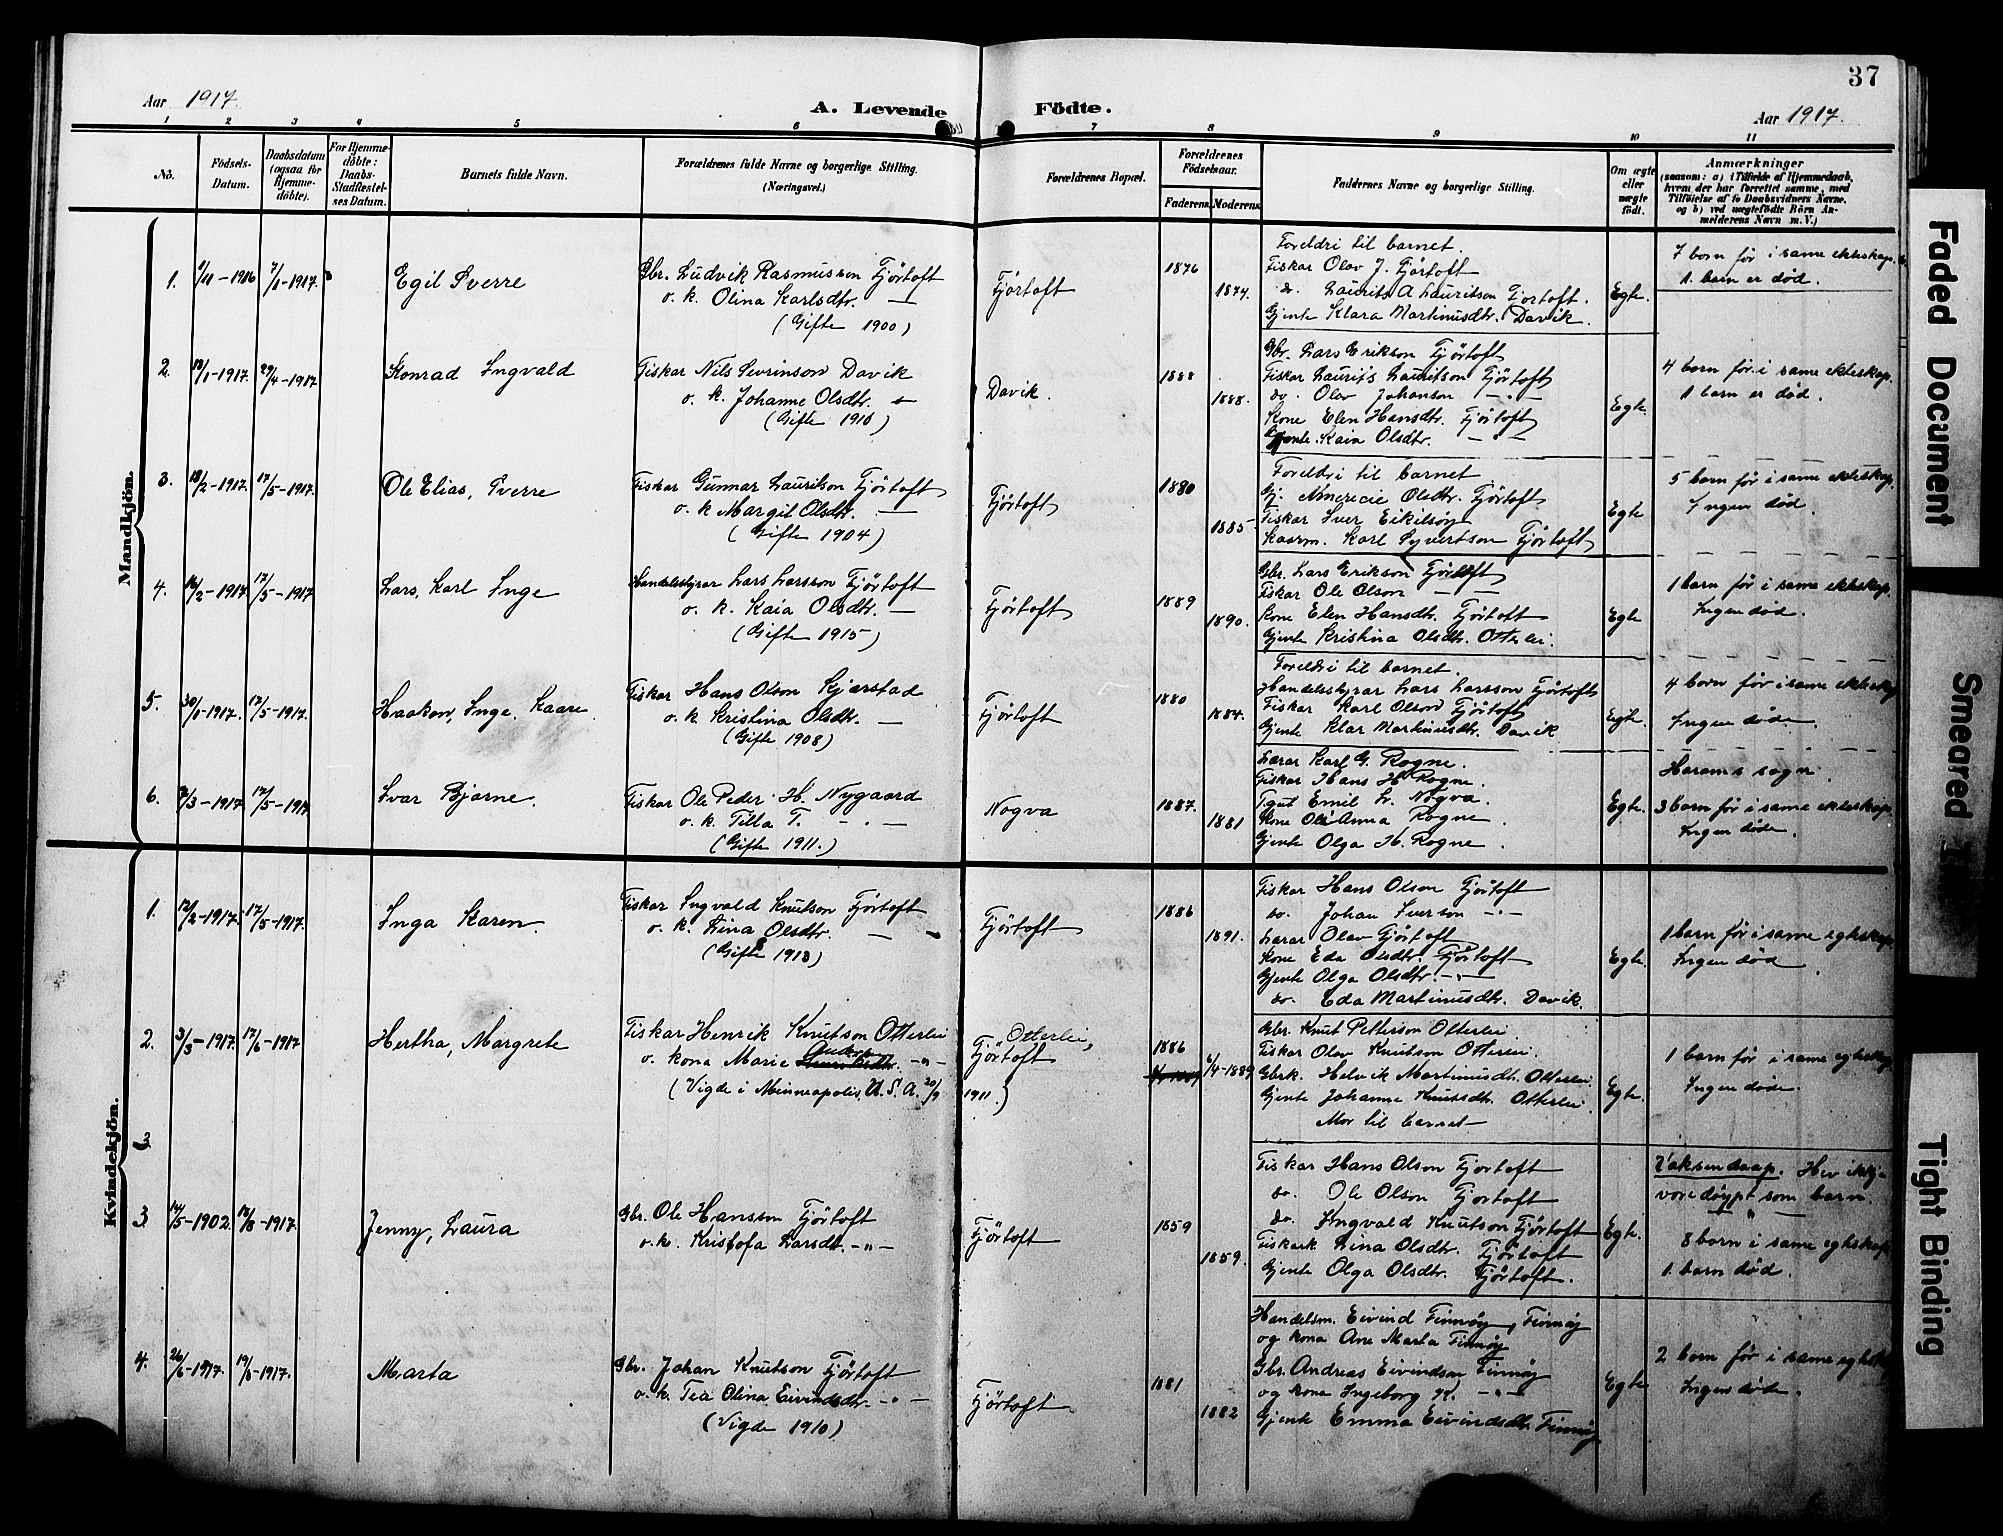 37
Aar 1917.
A. Levende Födte.
Aar 1917.
1 2 3 4 5 6 7 8 9 10 11
No.
Födsels-Datum.
Daabsdatum (ogsaa for Hjemme-döbte).
For Hjemme-döbte: Daabs-Stadfæstel-ses Datum.
Barnets fulde Navn.
Forældrenes fulde Navne og borgerlige Stilling.
(Næringsvei.)
Forældrenes Bopæl.
Forældrenes Födselsaar.
Faderens. Moderens.
Faddernes Navne og borgerlige Stilling.
Om ægte eller uægte födt.
Anmærkninger
(saasom: a) i Tilfælde af Hjemmedaab,
hvem der har forrettet samme, med
Tilföielse af to Daabsvidners Navne,
og b) ved uægtefödte Börn An-
melderens Navn m.V.)
Mandkjön.
1. 1/11-1916 7/1-1917. Egil Sverre
Gbr. Ludvik Rasmusson Fjörtoft
o. k. Olina Karlsdtr. —
(Gifte 1900)
Fjörtoft
1876
1874.
Foreldri til barnet.
Fiskar Olov J. Fjörtoft
do. Laurits A Lauritson Fjortoft.
Gjente Klara Martinusdtr. Davik.
Egte.
7 born før i same ekteskap.
1 barn er død.
2. 13/1-1917. 29/4-1917 Konrad Ingvald
Fiskar Nils Sevrinson Davik
o. k. Johanne Olsdtr.
(Gifte 1910)
Davik.
1888
1888.
Gbr. Lars Erikson Fjörtoft
Fiskar Laurits Lauritson Fjörtoft
do. Olov Johanson — " —
Kone Elen Hansdtr. Fjörtoft
Gjente Kaia Olsdtr. — " —
Egte.
4 born før i same ekteskap.
1 barn er død.
3. 18/2-1917. 17/5-1917. Ole Elias, Sverre
Fiskar Gunnar Lauritson Fjörtoft
o. k Margit Olsdtr. —
(Gifte 1904)
Fjörtoft
1880
1885
Foreldri til barnet
Gj. Amerecie Olsdtr. Fjörtoft.
Fiskar Iver Eikilsöy
Kaarm. Karl Syvertson Fjörtoft
Egte
5 born før i same ekteskap.
Ingen død.
4. 16/2-1917 17/5-1917 Lars, Karl Inge
Handelsstyrar Lars Larsson Fjörtoft
o. k. Kaia Olsdtr. —
(Gifte 1915)
Fjörtoft
1889
1890.
Gbr. Lars Erikson Fjörtoft
Fiskar Ole Olson — —
Kone Elen Hansdtr. Fjörtoft
Gjente Kristina Olsdtr. Otterlei.
Egte
1 barn før i same ekteskap.
Ingen død.
5. 30/1-1917. 17/5-1917. Haakon, Inge, Kaare.
Fiskar Hans Olson Kjerstad
o. k Kristina Olsdtr. —
(Gifte 1908)
Fjörtoft
1880
1884.
Foreldri til barnet.
Handelsstyrar Lars Larsson Fjörtoft
Fiskar Karl Olson Fjörtoft
Gjente Klar Martinusdtr. Davik
Egte.
4 born før i same ekteskap
Ingen døde.
6. 7/3-1917. 17/5-1917 Ivar Bjarne.
Fiskar Ole Peder H. Nygaard
o. k. Tilla T. — . —
(Gifte 1911.)
Nogva
1887.
1881
Lærar Karl G. Rogne.
Fiskar Hans H. Rogne.
Tgut Emil L. Nogva.
Kone Ole Anna Rogne.
Gjente Olga H. Rogne.
Egte.
Harams sogn.
3 born før i same ekteskap.
Ingen døde.
Kvindekjön.
1. 12/2-1917. 17/5-1917. Inga Karen.
Fiskar Ingvald Knutson Fjörtoft
o. k. Lina Olsdtr. —
(Gifte 1913)
Fjörtoft
1886
1891.
Fiskar Hans Olson Fjörtoft
do. Johan Iverson — " —
Lærar Olav Fjörtoft
Kone Eda Olsdtr. Fjörtoft
Gjente Olga Olsdtr. — " —
do. Eda Martinusdtr. Davik.
Egte.
1 barn før i same egteskap.
Ingen død.
2. 3/3-1917. 17/6-1917 Hertha, Margrete
Fiskar Henrik Knutson Otterlei
o. kona Marie — " —
(Vigde i Minneapolis, U. S. A. 20/9 1911)
Otterlei,
Fjörtoft
1886
6/4-1889
Gbr. Knut Petterson Otterlei
Fiskar Olav Knutson Otterlei.
Gbrk. Helvik Martinusdt. Otterlei.
Gjente Johanne Knutsdt. Otterlei.
Mor til barnet
Egte.
1 barn før i same egteskap
Ingen døde.
3
3. 14/5-1902. 19/8-1917. Jenny, Laura
Gbr. Ole Hansson Fjörtoft
o. k. Kristofa Larsdt. — " —
Fjörtoft
1859
1859.
Fiskar Hans Olson Fjortoft
do. Ole Olson Fjortoft
do. Ingvald Knutson Fjörtoft
Fiskark Lina Olsdtr. Fjörtoft
Gjente Olga Olsdtr. Fjörtoft.
Egte.
Vaksendaap. Hev ikkje
vore døypt som barn.
— " —
8 born i same egteskap
1 barn død.
4. 26/6-1917. 19/8-1917. Marta
Gbr. Johan Knutson Fjörtoft
o. k. Tea Olina Eivindsdtr. — " —
(Vigde 1910)
Fjörtoft
1881
1882
Handelsm. Eivind Finnöy, Finnöy
og kona Ane Marta Finnöy
Gbr. Andreas Eivindson Finnöy
og kona Ingeborg K. — " —
Gjente Emma Eivindsdt. Finnöy
Egte
2 born før i same egteskap
Ingen døde.
Faded Document
Smeared
Tight Binding